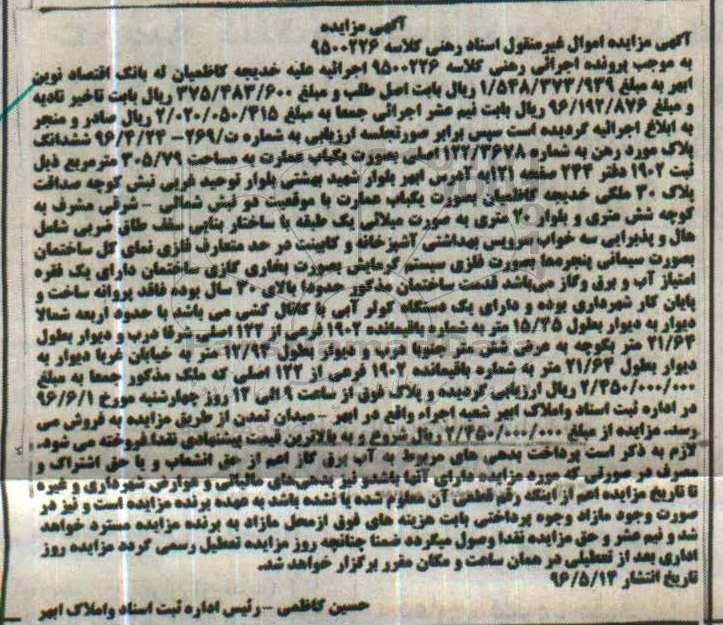 آگهی مزایده
آگهی مزایده اموال غیرمنقول اسناد رهنی کلاسه ۹۵۰۰۲۲۶
به موجب پرونده اجرائی رهنی کلاسه ۹۵۰۰۲۲۶ اجرائیه علیه خدیجه کاظمیان له بانک اقتصاد نوین
ابهر به مبلغ ۱/۵۴۸/۳۷۳/۹۳۹ ریال بابت اصل طلب و مبلغ ۳۷۵/۴۸۳/۶۰۰ ریال بابت تاخیر تادیه
و مبلغ ۹۶/۱۹۲/۸۷۶ ریال بابت نیم عشر اجرائی جمعا به مبلغ ۲/۰۲۰/۰۵۰/۴۱۵ ریال صادر و منجر
به ابلاغ اجرائیه گردیده است سپس برابر صورتجلسه ارزیابی به شماره ت/۲۶۹– ۹۶/۴/۲۴ ششدانگ
پلاک مورد رهن به شماره ۱۲۲/۳۶۷۸ اصلی بصورت یکباب عمارت به مساحت ۳۰۵/۷۹ مترمربع ذیل
ثبت ۱۹۰۲ دفتر ۲۳۳ صفحه ۱۲۱به آدرس ابهر بلوار شهید بهشتی بلوار توحید غربی نبش کوچه صداقت
پلاک ۳۰ ملکی خدیجه کاظمیان بصورت یکباب عمارت با موقعیت دو نبش شمالی – شرقی مشرف به
کوچه شش متری و بلوار ۲۰ متری به صورت میلانی یک طبقه با ساختار بنایی سقف طاق ضربی شامل
هال و پذیرایی سه خواب سرویس بهداشتی آشپزخانه و کابینت در حد متعارف فلزی نمای کل ساختمان
بصورت سیمانی پنجره‌ها بصورت فلزی سیستم گرمایش بصورت بخاری گازی ساختمان دارای یک فقره
امتیاز آب و برق وگاز می‌باشد قدمت ساختمان مذکور حدودا بالای ۳۰ سال بوده فاقد پروانه ساخت و
پایان کار شهرداری بوده و دارای یک دستگاه کولر آبی با کانال کشی می باشد با حدود اربعه شمالا
دیوار به دیوار بطول ۱۵/۳۵ متر به شماره باقیمانده ۱۹۰۲ فرعی از ۱۲۲ اصلی شرقا درب و دیوار بطول
۲۱/۶۳ متر بکوچه به عرض شش متر جنوبا درب و دیوار بطول ۱۲/۹۳ متر به خیابان غربا دیوار به
دیوار بطول ۲۱/۶۳ متر به شماره باقیمانده ۱۹۰۲ فرعی از ۱۲۲ اصلی که ملک مذکور جمعا به مبلغ
۲/۳۵۰/۰۰۰/۰۰۰ ریال ارزیابی گردیده و پلاک فوق از ساعت ۹ الی ۱۲ روز چهارشنبه مورخ ۹۶/۶/۱
در اداره ثبت اسناد واملاک ابهر شعبه اجراء واقع در ابهر – میدان تمدن از طریق مزایده به فروش می
رسد. مزایده از مبلغ ۲/۳۵۰/۰۰۰/۰۰۰ ریال شروع و به بالاترین قیمت پیشنهادی نقدا فروخته می شود.
لازم به ذکر است پرداخت بدهی های مربوط به آب برق گاز اعم از حق انشعاب و یا حق اشتراک و
مصرف در صورتی که مورد مزایده دارای آنها باشدو نیز بدهی‌های مالیاتی و عوارض شهرداری و غیره
تا تاریخ مزایده اعم از اینکه رقم قطعی آن معلوم شده یا نشده باشد به عهده برنده مزایده است و نیز در
صورت وجود مازاد وجوه پرداختی بابت هزینه های فوق ازمحل مازاد به برنده مزایده مسترد خواهد
شد و نیم عشر و حق مزایده نقدا وصول میگردد ضمنا چنانچه روز مزایده تعطیل رسمی گردد مزایده روز
اداری بعد از تعطیلی در همان ساعت و مکان مقرر برگزار خواهد شد.
تاریخ انتشار ۹۶/۵/۱۴
حسین کاظمی – رئیس اداره ثبت اسناد واملاک ابهر